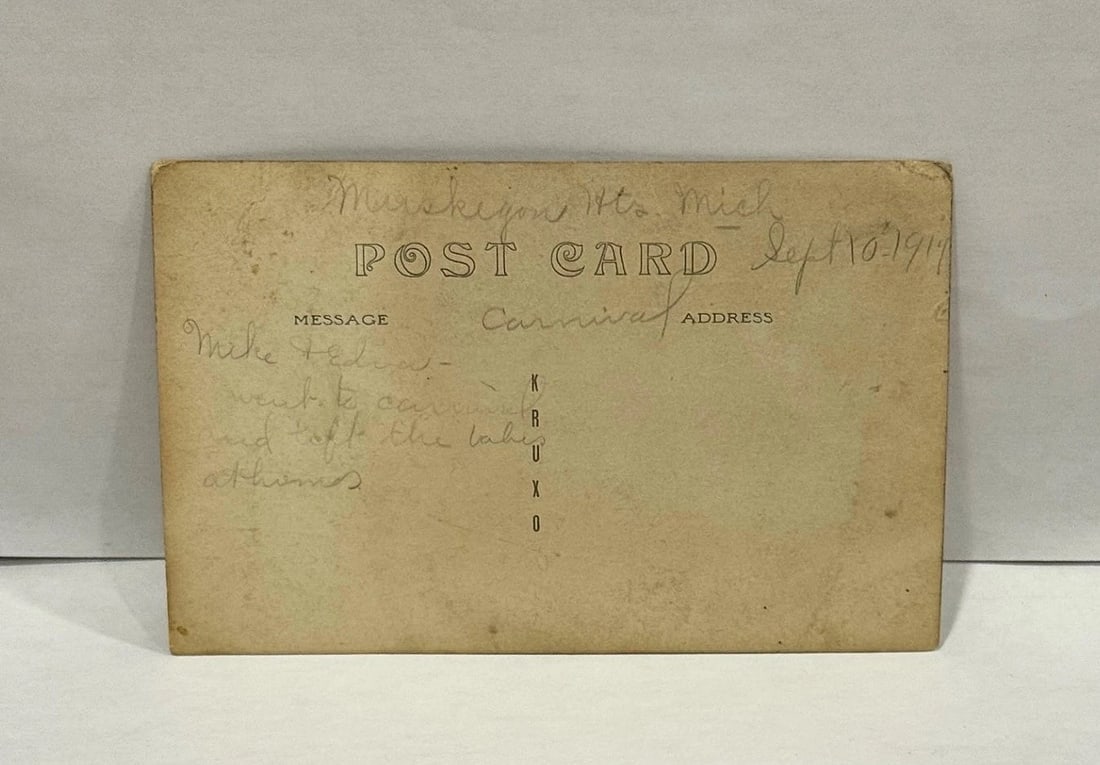 Muskegon Hts. Mich
POST CARD
Sept 10-1917
MESSAGE
Carnival
ADDRESS
Mike & Edna-
went to carnival
and left the babies
at home
K
R
U
X
O